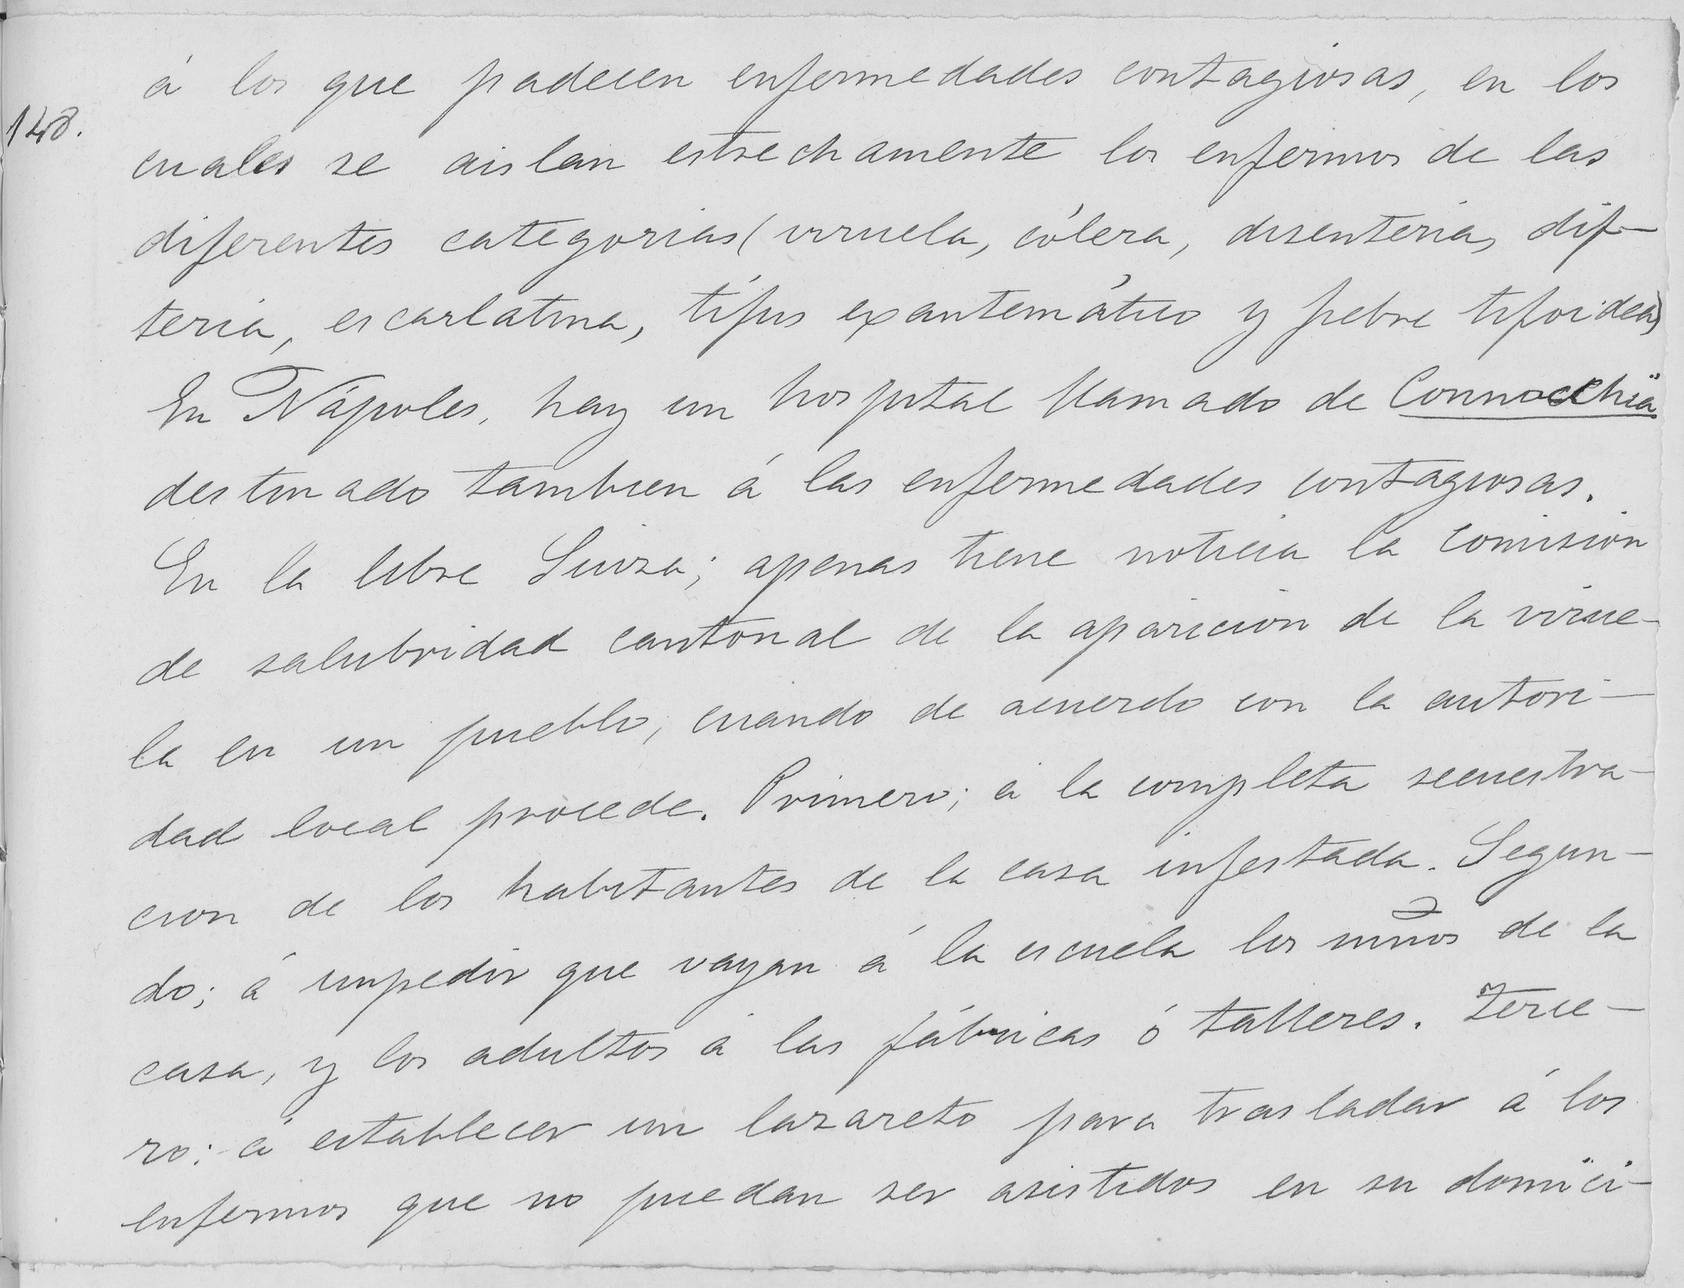 á los que padecen enfermedades contagiosas, en los
148.
cuales se aislan estrechamente los enfermos de las
diferentes categorias (viruela, cólera, disenteria, dif-
teria, escarlatina, tífus exantemático y fiebre tifoidea)
En Nápoles, hay un hospital llamado de Connocchia
destinado tambien á las enfermedades contagiosas.
En la libre Suiza; apenas tiene noticia la comision
de salubridad cantonal de la aparicion de la virue-
la en un pueblo, cuando de acuerdo con la autori-
dad local procede. Primero; á la completa secuestra-
cion de los habitantes de la casa infestada. Segun-
do; á impedir que vayan á la escuela los niños de la
casa, y los adultos á las fábricas ó talleres. Terce-
ro: á establecer un lazareto para trasladar á los
enfermos que no puedan ser asistidos en su domici-